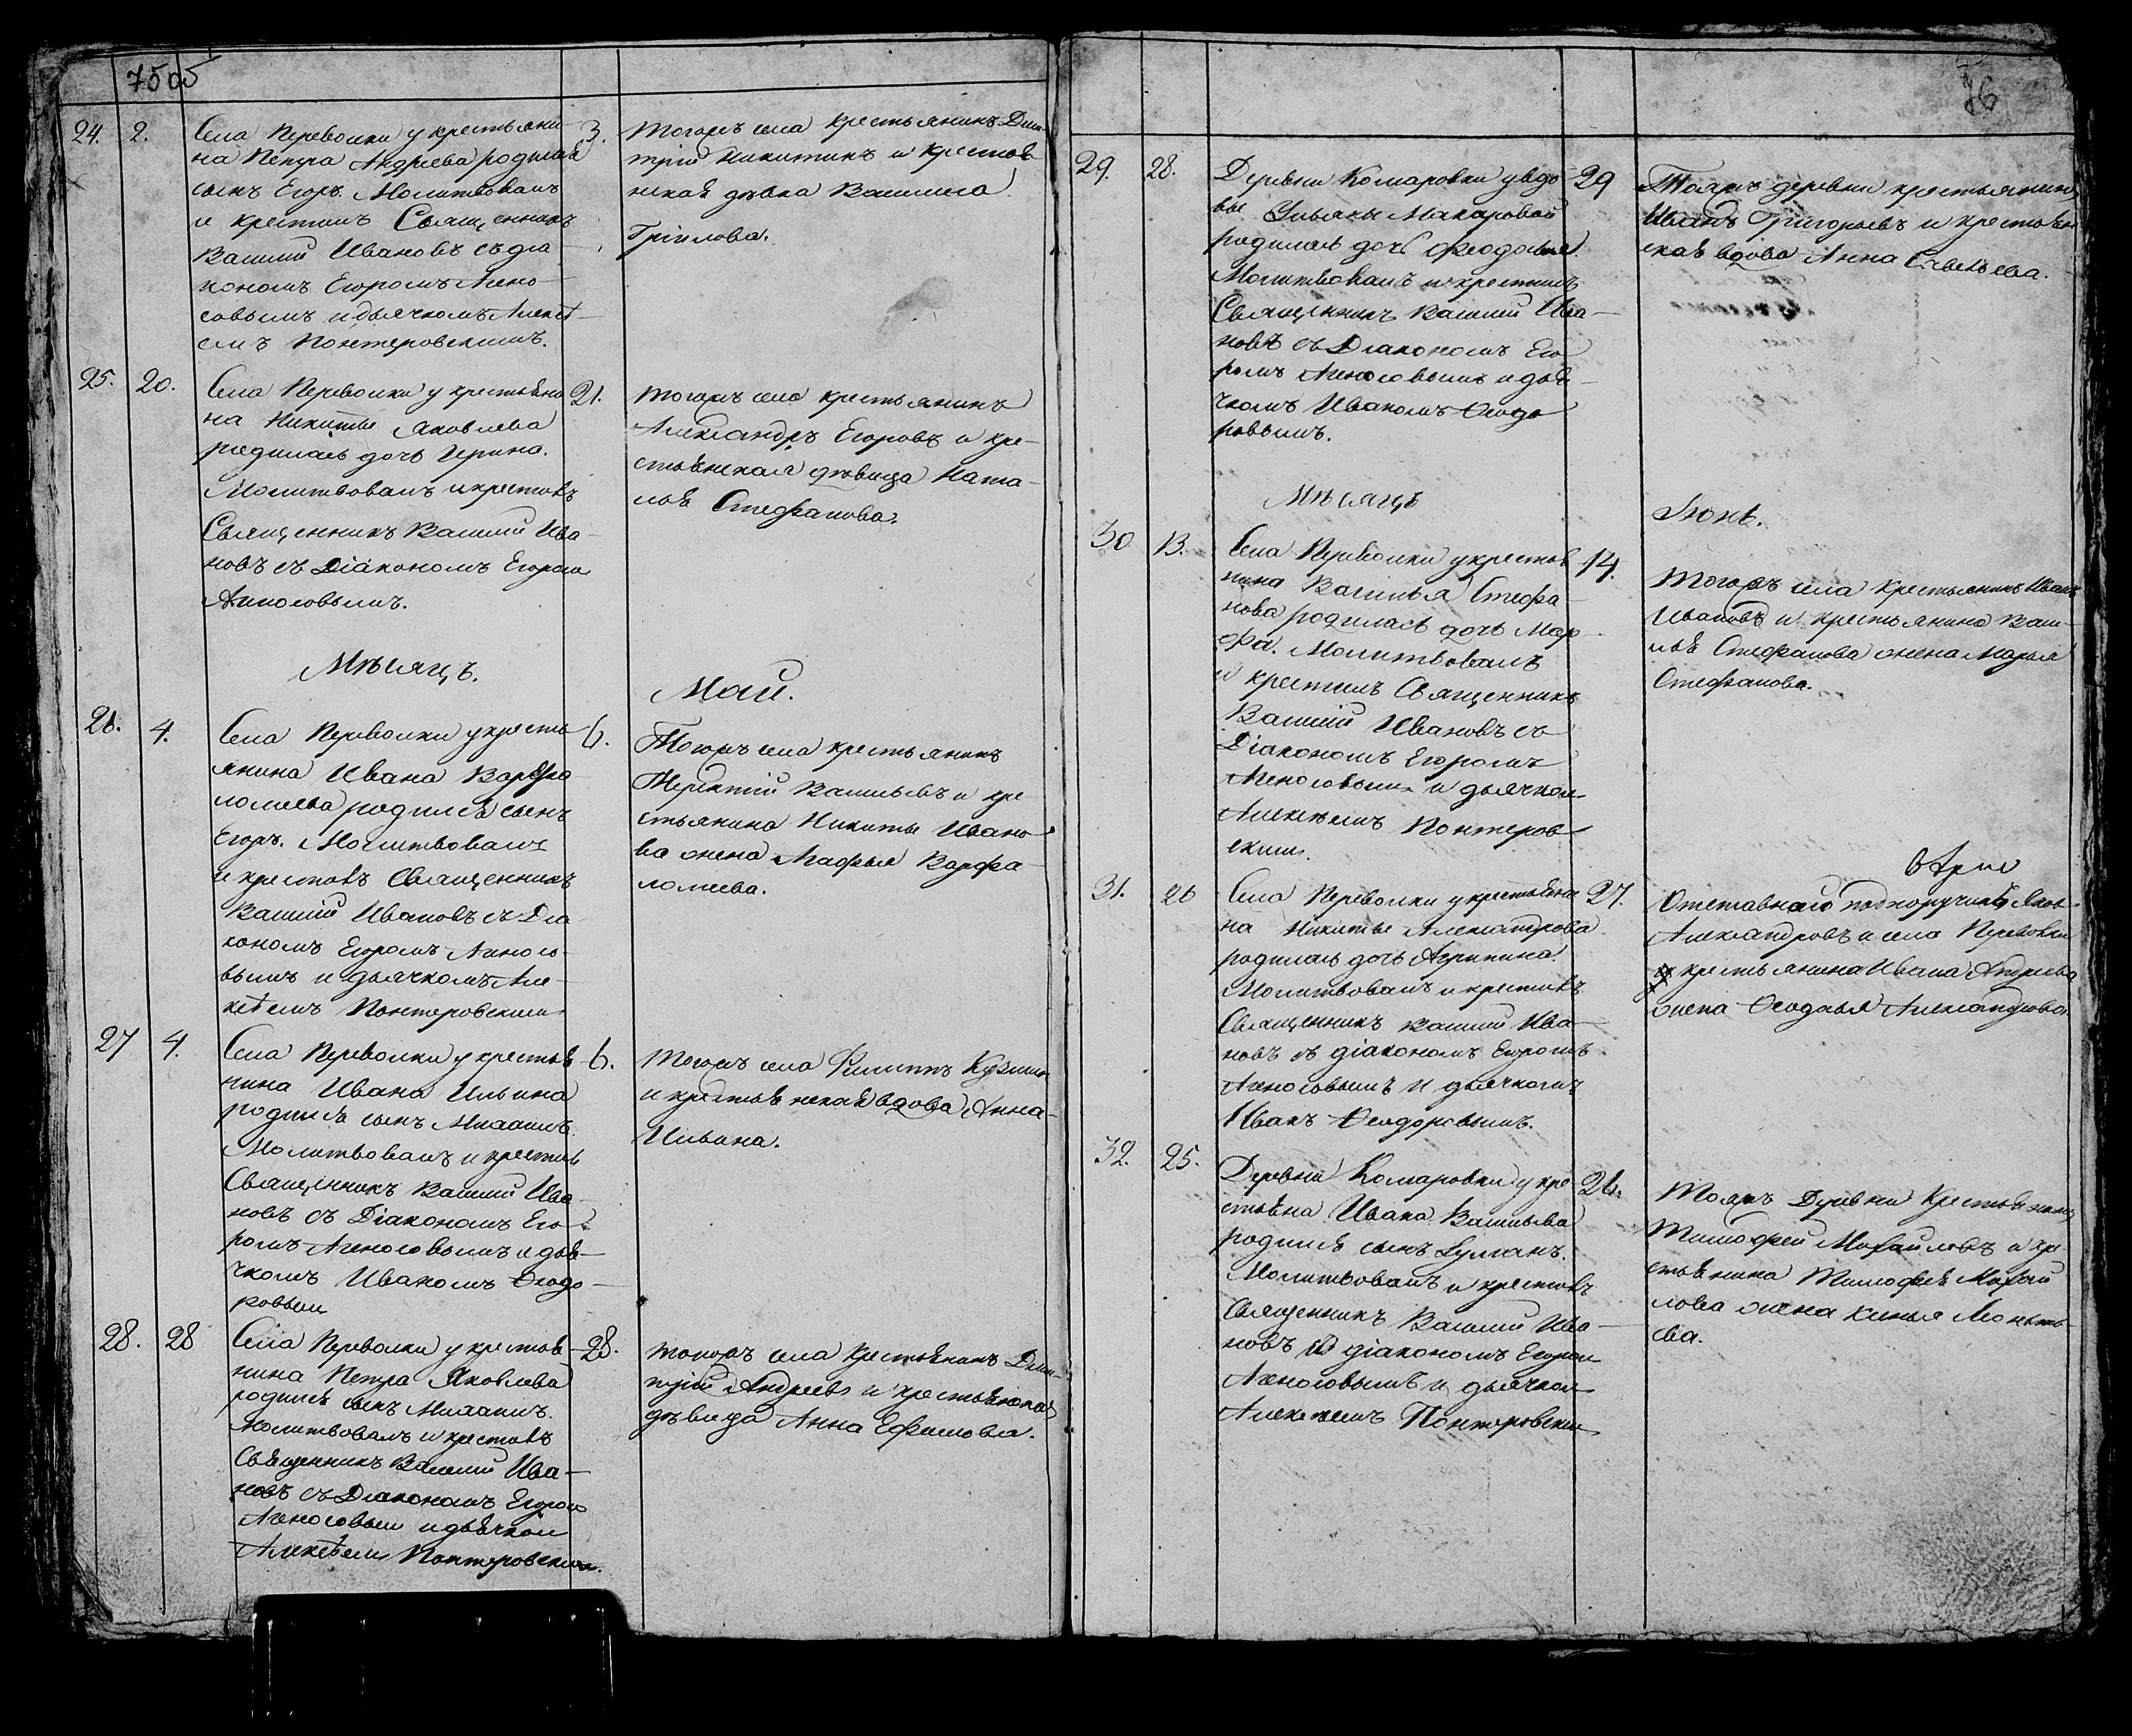 75об
24. 2. Села Переволки у крестьяни- 3.
на Петра Андреева родился
сынъ Егоръ. Молитвовалъ
и крестилъ Священникъ
Василий Ивановъ съ діа
кономъ Егоромъ Агено-
совымъ и дьячкомъ Алексѣ-
емъ Понтеровскимъ.
Тогожъ села крестьянинъ Дми-
трій Никитинъ и крестьян
ская дѣвка Василиса
25. 20. Села Переволки у крестьяни 21.
на Никиты Яковлева
родилась дочь Ирина.
Молитвовалъ и крестилъ
Священникъ Василий Ива-
новъ съ Діакономъ Егоромъ
Агеносовымъ.
Тогожъ села крестьянинъ
Александръ Егоровъ и кре-
стьянская дѣвица Ната-
лья Стефанова.
Мѣсяцъ.
Май.
26. 4. Села Переволки у кресть 6.
янина Ивана Варфо
ломеева родился сынъ
Егоръ. Молитвовалъ
и крестилъ Священникъ
Василий Ивановъ съ Діа
кономъ Егоромъ Агеносо-
вымъ и дьячкомъ Але-
ксѣемъ Понтеровскимъ
Тогожъ села крестьянинъ
Терентий Васильевъ и кре
стьянина Никиты Ивано-
ва жена Агафья Варфо
ломеева.
27 4. Села Переволки у крестья 6.
нина Ивана Ильина
родился сынъ Михаилъ.
Молитвовалъ и крестилъ
Священникъ Василий Ива-
новъ съ Діакономъ Его-
ромъ Агеносовымъ и дья-
чкомъ Иваномъ Феодо-
ровым
Тогожъ села Филиппъ Кузьмин
и крестьянская вдова Анна
Ильина.
28. 28 Села Переволки у крестья- 28.
нина Петра Яковлева
родился сынъ Михаилъ.
Молитвовалъ и крестилъ
Священникъ Василий Ива-
новъ съ Діакономъ Егоромъ
Агеносовым и дьячком
Алексѣем Понтеровским.
Тогожъ села Крестьянинъ Дми-
трій Андреевъ и крестьянская
дѣвица Анна Ефимова.
76
29. 28. Деревни Комаровки у вдо- 29
вы Ульяны Макаровой
родилась дочь Феодосья.
Молитвовалъ и крестилъ
Священникъ Василий Ива-
новъ съ Діакономъ Его
ромъ Агеносовымъ и дья-
чкомъ Иваномъ Феодо
ровымъ.
Тояжъ деревни крестьянинъ
Иванъ Григорьевъ и крестьян
ская вдова Анна Савельева.
Мѣсяцъ
Іюнь.
30 13. Села Переволки у крестья 14.
нина Василья Стефа-
нова родилась дочь Мар-
фа. Молитвовалъ
и крестилъ Священникъ
Василий Ивановъ съ
Діакономъ Егоромъ
Агеносовымъ и дьячком
Алексѣемъ Понтеров-
ским.
Тогожъ села Крестьянинъ Иванъ
Ивановъ и крестьянина Васи-
лья Стефанова жена Марья
Стефанова.
31. 26 Села Переволки у крестьяни 27.
на Никиты Александрова
родилась дочь Агрипина.
Молитвовалъ и крестилъ
Священникъ Василий Ива-
новъ съ діакономъ Егоромъ
Агеносовымъ и дьячкомъ
Иванъ Феодоровымъ.
Отставнаго подпоручика Яков
Александровъ и села Переволки
крестьянина Ивана Андреева
жена Феодосья Александрова.
32. 25. Деревни Комаровки у кре 26.
стьяна Ивана Васильева
родился сынъ Іулианъ.
Молитвовалъ и крестилъ
Священникъ Василий Ива-
новъ съ діакономъ Егором
Агеносовымъ и дьячком
Алексѣемъ Понтеровским
Тояжъ Деревни Крестьянинъ
Тимофей Михайловъ и кре-
стьянина Тимофея Михай
лова жена